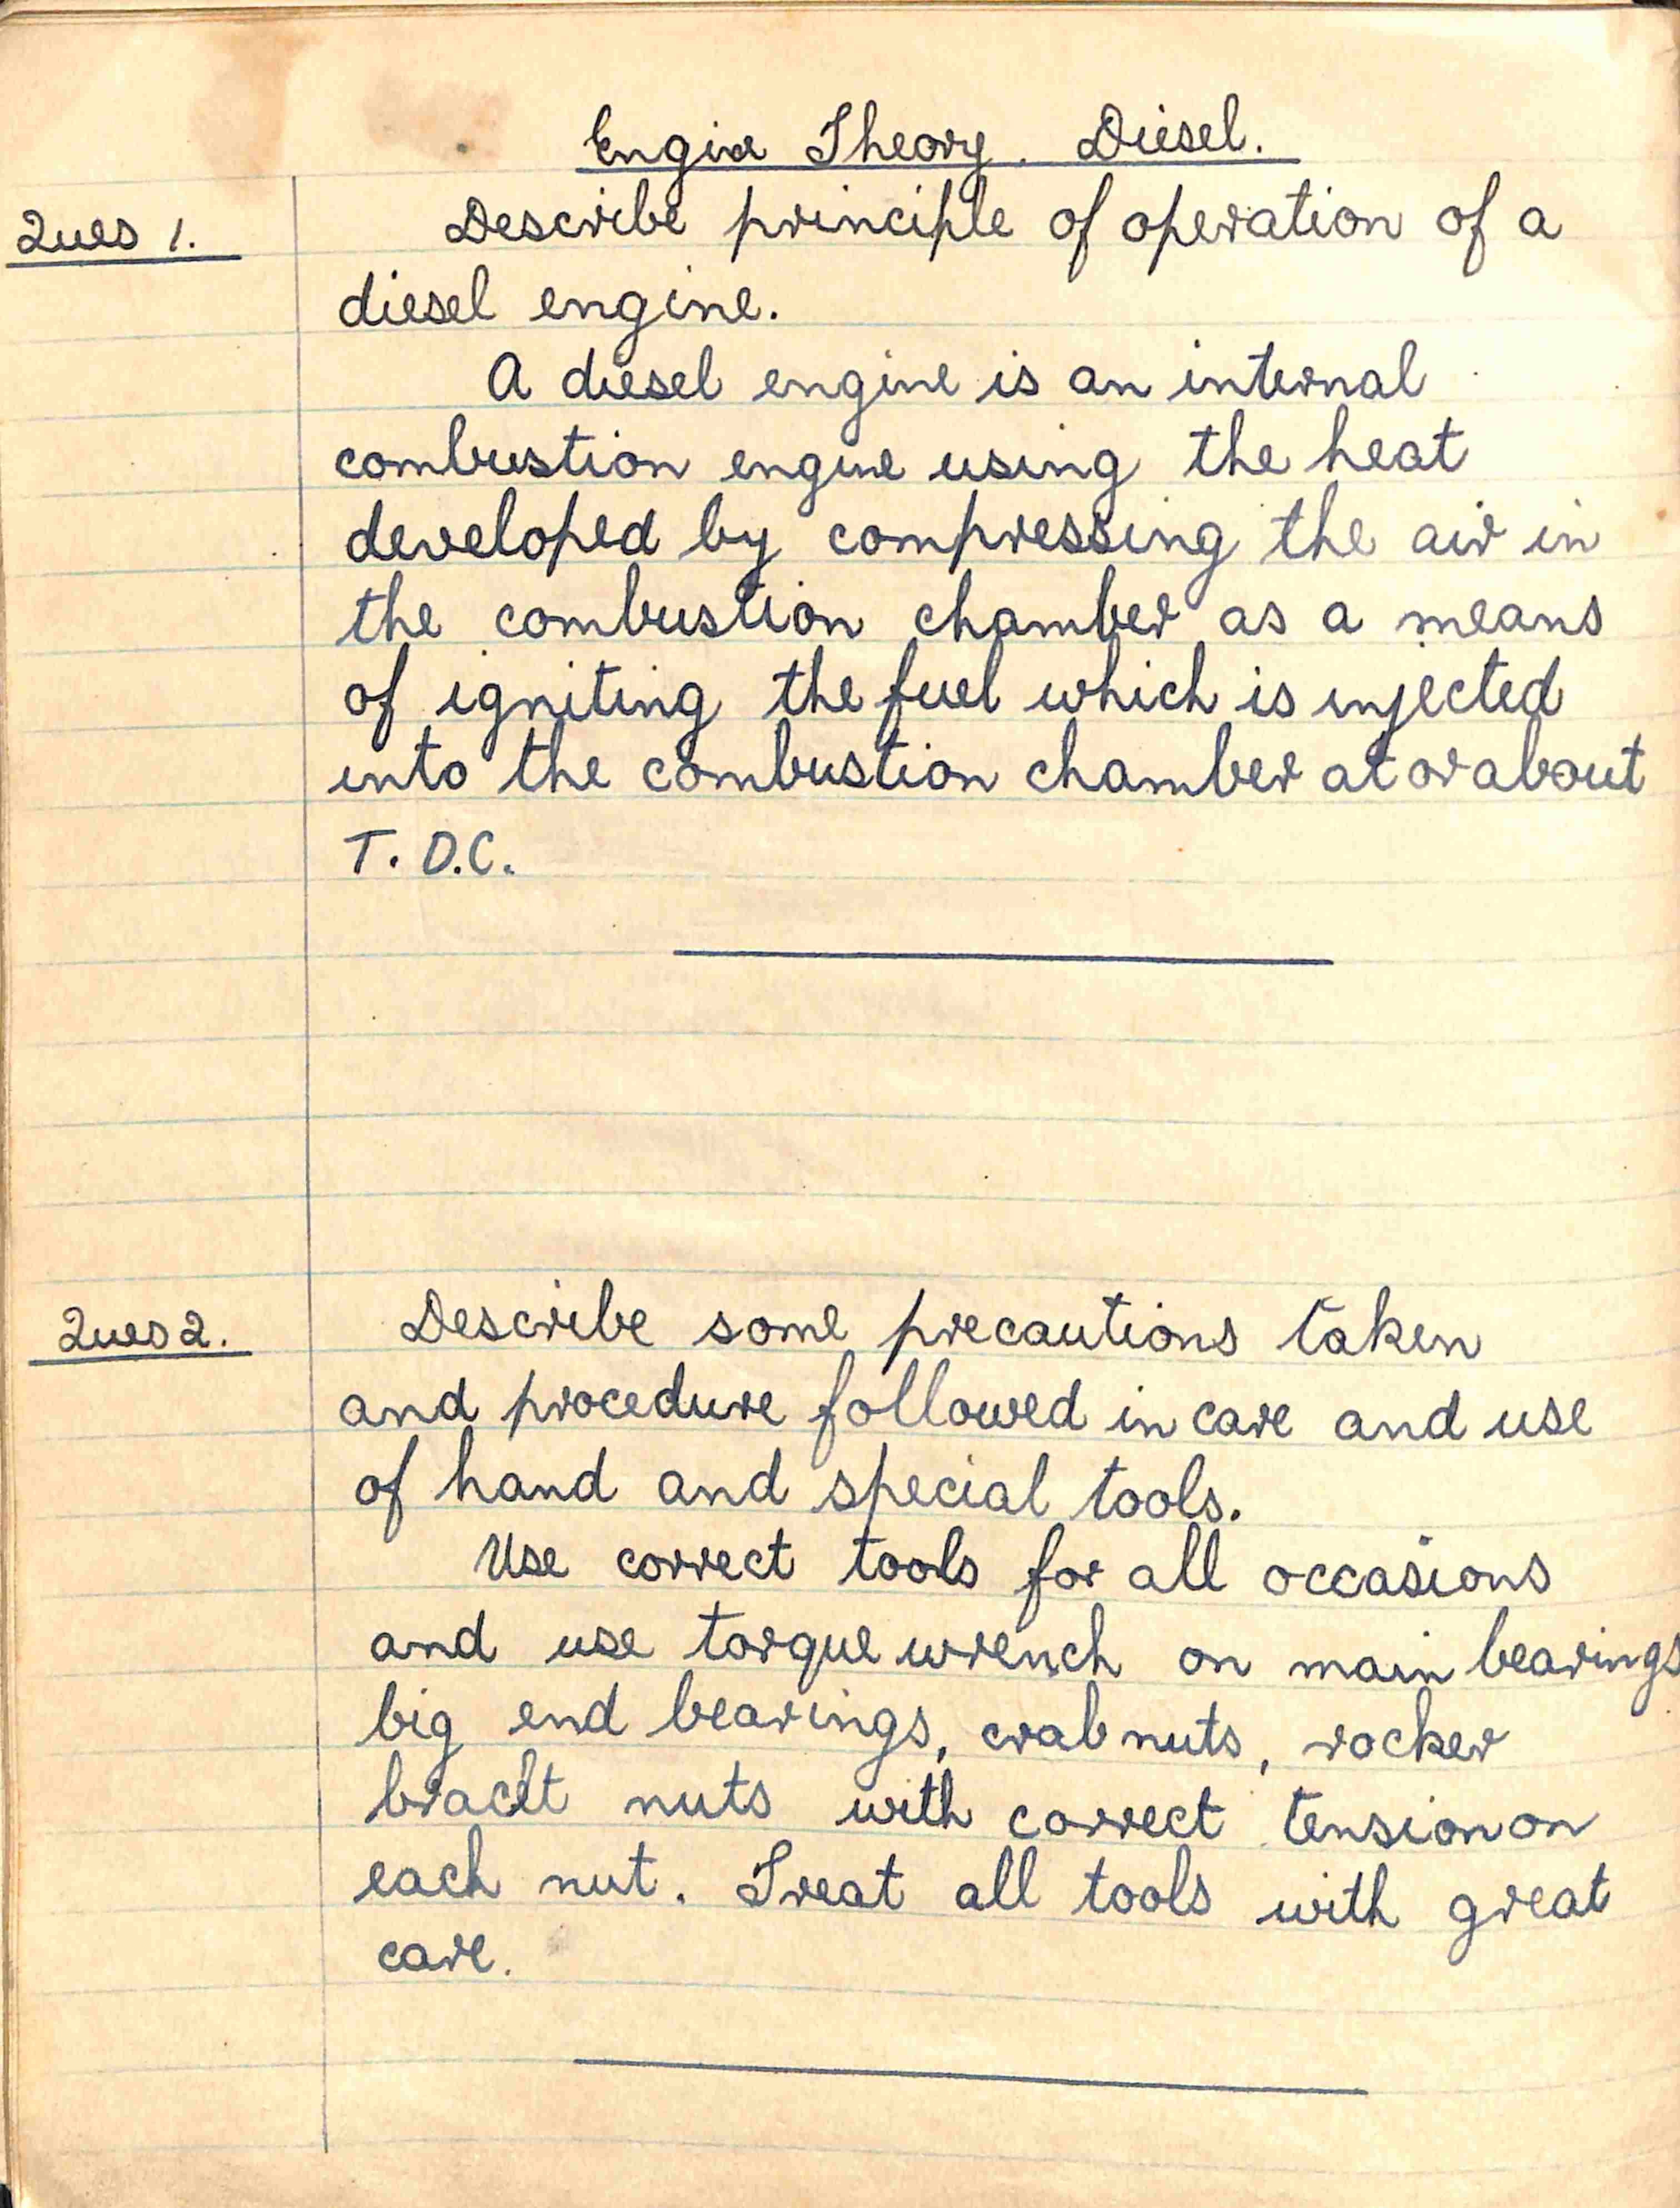 Engine Theory. Diesel.
Ques 1.
Describe principle of operation of a
diesel engine.
A diesel engine is an internal
combustion engine using the heat
developed by compressing the air in
the combustion chamber as a means
of igniting the fuel which is injected
into the combustion chamber at or about
T.D.C.
Ques 2.
Describe some precautions taken
and procedure followed in care and use
of hand and special tools.
Use correct tools for all occasions
and use torque wrench on main bearings
big end bearings, crab nuts, rocker
nuts with correct tension on
each nut. Treat all tools with great
care.